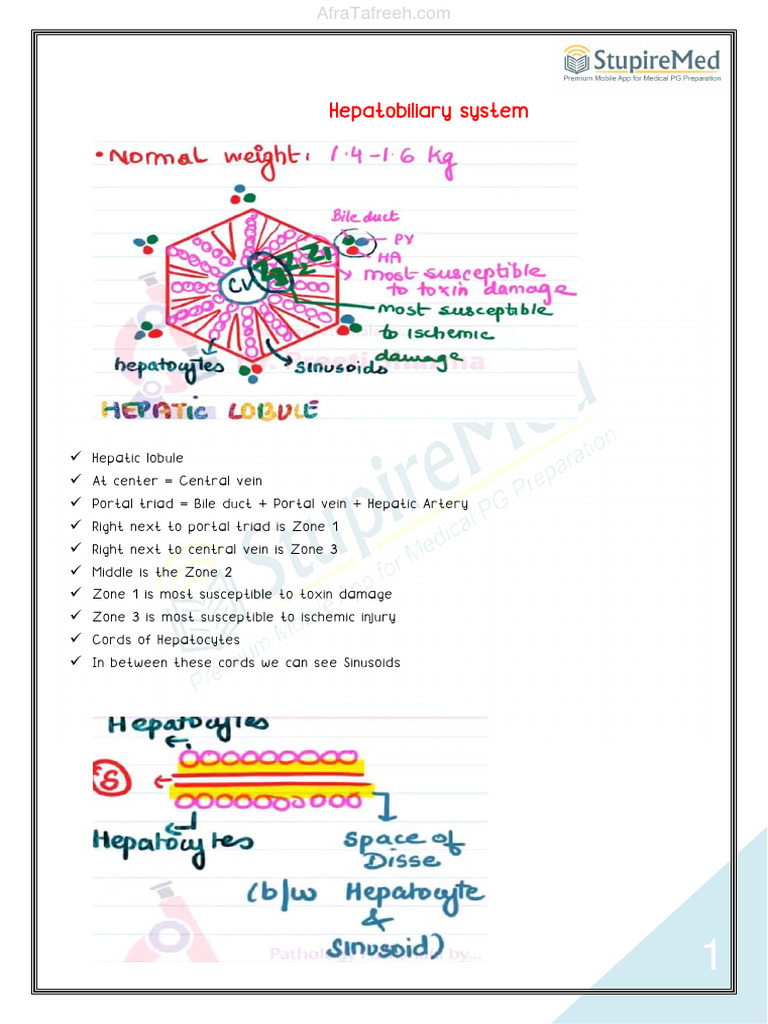 AfraTafreeh.com
StupireMed
Premium Mobile App for Medical PG Preparation
Hepatobiliary system
• Normal weight: 1.4-1.6 kg
Bile duct
PV
HA
Z1
Z2
Z3
CV
most susceptible
to toxin damage
most susceptible
to Ischemic
damage
hepatocytes
sinusoids
HEPATIC LOBULE
✓ Hepatic lobule
✓ At center = Central vein
✓ Portal triad = Bile duct + Portal vein + Hepatic Artery
✓ Right next to portal triad is Zone 1
✓ Right next to central vein is Zone 3
✓ Middle is the Zone 2
✓ Zone 1 is most susceptible to toxin damage
✓ Zone 3 is most susceptible to ischemic injury
✓ Cords of Hepatocytes
✓ In between these cords we can see Sinusoids
StupireMed
Premium Mobile App for Medical PG Preparation
Hepatocytes
S
Hepatocytes
Space of
Disse
(b/w Hepatocyte
&
Sinusoid)
by...
1